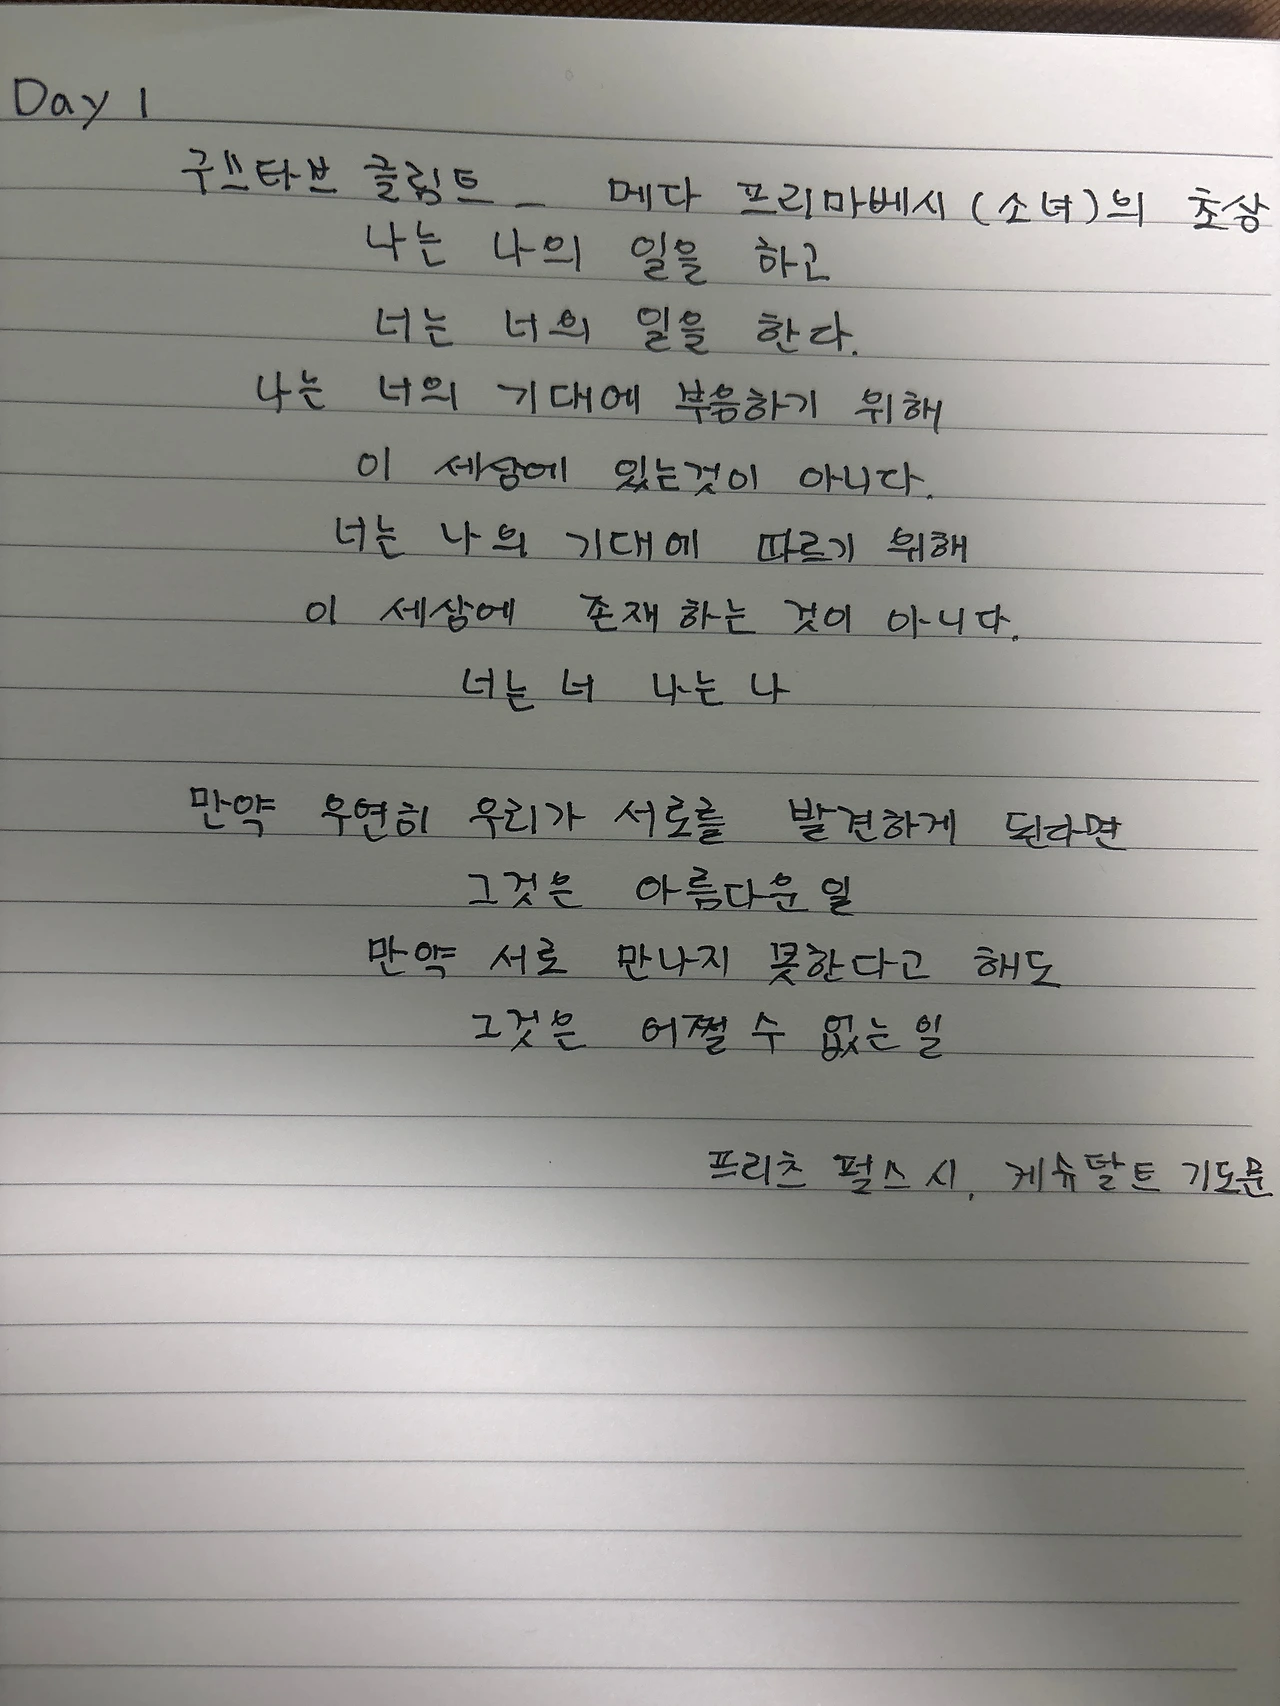 Day 1
구스타브 클림트 _ 메다 프리마베시 (소녀)의 초상
나는 나의 일을 하고
너는 너의 일을 한다.
나는 너의 기대에 부응하기 위해
이 세상에 있는것이 아니다.
너는 나의 기대에 따르기 위해
이 세상에 존재하는 것이 아니다.
너는 너 나는 나
만약 우연히 우리가 서로를 발견하게 된다면
그것은 아름다운 일
만약 서로 만나지 못한다고 해도
그것은 어쩔 수 없는 일
프리츠 펄스 시, 게슈탈트 기도문